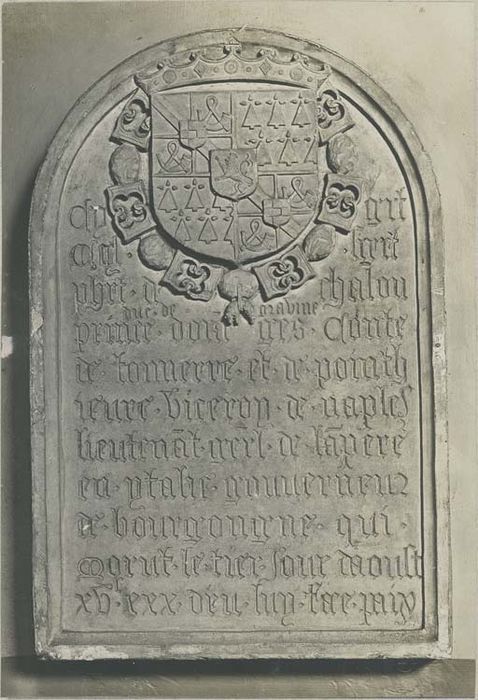 Cy git
Mgr phert
phrt · de chalon
duc · de gravine
prince · dorā ges · Conte
de · tonnerre · et · de · ponth
ieure · Viceroy · de · naples
lieutenāt · gēral · de · lāpere
en · ytalie · gouverneur
de · bourgougne · qui ·
Morut · le · tier · Jour · daoust
xvᶜ · xxx · dieu · luy · face · paix